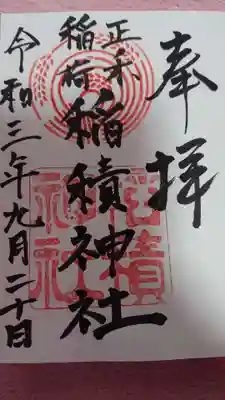 奉拝
正木
稲荷
稲積神社
令和三年九月二十日
稲積
神社